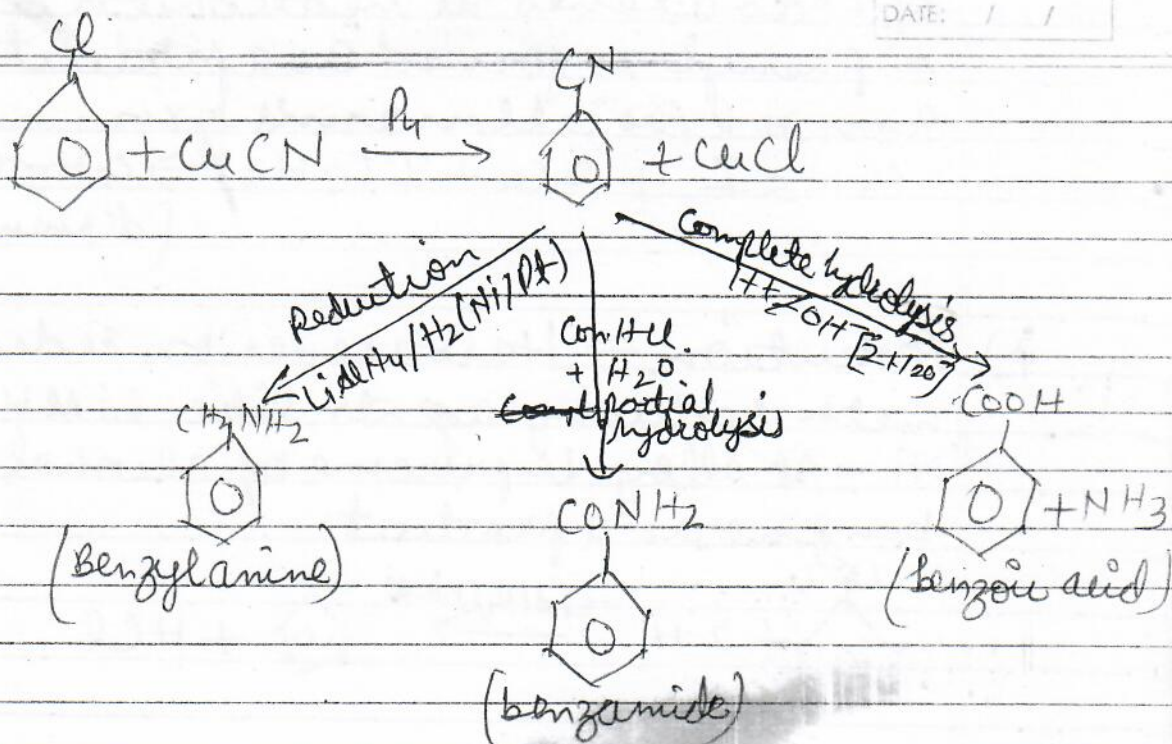 DATE: / /
Cl
CN
+ CuCN Py + CuCl
Reduction
LiAlH4/H2(Ni/Pt)
Con HCl
+ H2O
partial
hydrolysis
Complete hydrolysis
H+/OH- [2H2O]
CH2NH2
(Benzylanine)
CONH2
(benzamide)
COOH
+ NH3
(benzoic acid)